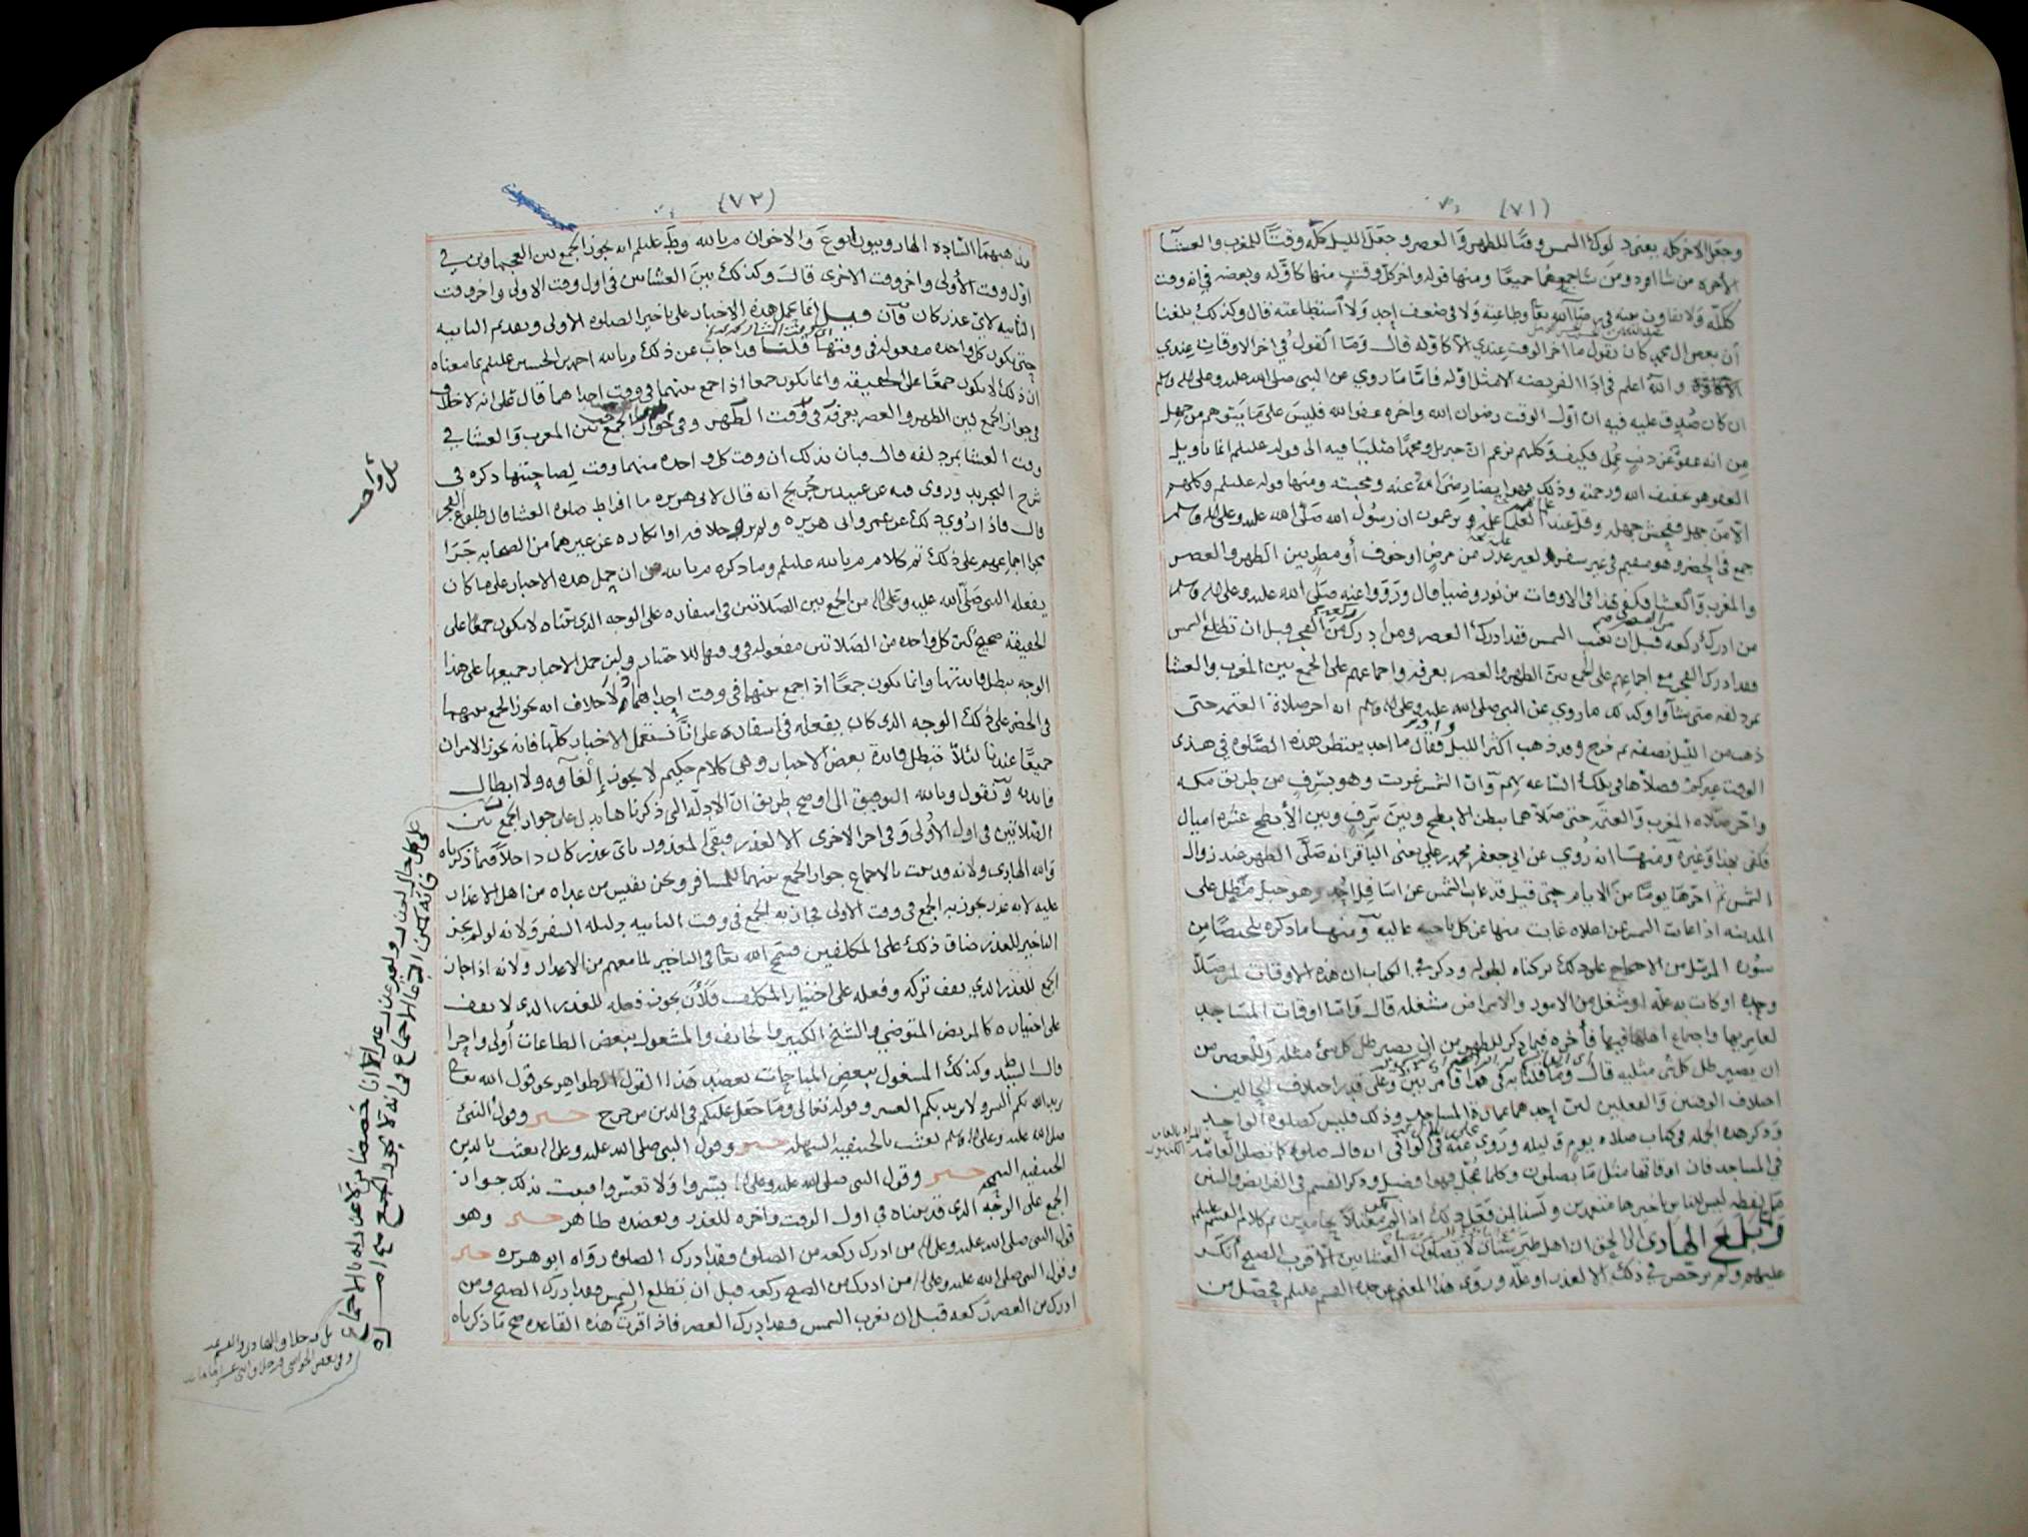 (٧١)
وجعل الاخر كله يعني دلوك الشمس وقتا للظهر والعصر وجعل الليل كله وقتا للمغرب والعشا
الاخره من شا افرد ومن شا جمعهما جميعا ومنها قوله واخر كل وقت منها كاوله وبعضه في انه وقت
ككله ولا تفاوت عنه في رضا الله تعا وطاعته ولا في ضعف احد ولا استطاعته قال وكذلك بلغنا
ان بعض ال محمد كان يقول ما اخر الوقت عندي الا كاوله قال وما القول في اخر الاوقات عندي
والله اعلم في ادا الفريضه الا مثل اوله فاما ما روي عن النبي صلى الله عليه وعلى اله وسلم
ان كان صدق عليه فيه ان اول الوقت رضوان الله واخره عفو الله فليس على ما يتوهم من جهل
من انه عفو عن ذنب عمل فكيف وكلهم يزعم ان جبريل ومحمدا صليا فيه الى قوله عليلم انما تاويل
العفو هو تخفيف الله ورحمته وذلك فهو ايضا رضا الله عنه ومحبته ومنها قوله عليلم وكلهم
الا من جهل ففحش جهله وقل عند العلما علمه يزعمون ان رسول الله صلى الله عليه وعلى اله وسلم
جمع في الحضر وهو مقيم في غير سفر لغير عذر من مرض او خوف او مطر بين الظهر والعصر
والمغرب والعشا فكفى بهذا في الاوقات من نور وضيا قال ورووا عنه صلى الله عليه وعلى اله وسلم
من ادرك ركعه قبل ان تغيب الشمس فقد ادرك العصر ومن ادرك من الفجر قبل ان تطلع الشمس
فقد ادرك الفجر مع اجماعهم على الجمع بين الظهر والعصر بعرفه واجماعهم على الجمع بين المغرب والعشا
بمزدلفه متى شاوا وكذلك ما روي عن النبي صلى الله عليه وعلى اله وسلم انه اخر صلاة العتمه حتى
ذهب من الليل نصفه ثم خرج وقد ذهب اكثر الليل فقال ما احد ينتظر هذه الصلوه في هذى
الوقت غيركم فصلاها في تلك الساعه بهم وان الشمس غربت وهو بسرف من طريق مكه
واخر صلاه المغرب والعتمه حتى صلاهما ببطن الابطح وبين سرف وبين الابطح عشره اميال
فكفى بهذا وغيره ومنها انه روي عن ابي جعفر محمد بن علي يعني الباقر انه صلى الظهر عند زوال
الشمس ثم اخرها يوما من الايام حتى قيل قد غاب الشمس عن اسافل احد وهو جبل مطل على
المدينه اذا غابت الشمس عن اعلاه غابت منها عن كل ناحيه عاليه ومنها ما ذكره ملخصا من
سوره المزمل من الاحتجاج على ذلك تركناه لطوله وذكر في الكتاب ان هذه الاوقات لمن صلا
وحده او كانت به عله او شغل من الامور والامراض مشغله قال فاما اوقات المساجد
لعامريها واجتماع اهلها فيها فاخره فيما ذكر للظهر من ان يصير ظل كل شي مثله وللعصر من
ان يصير ظل كل شي مثليه قال وما قلنا به في هذا فامر بين وعلى قدر اختلاف الحالين
اختلاف الوقتين والفعلين لان احدهما عمارة المساجد وذلك فليس كصلوه الواحد
وذكر هذه الجمله في كتاب صلاه يوم وليله وروى عنه في الوافي انه قال صلوه كما تصلى العامه
في المساجد فان اوقاتها مثل ما يصلون وكلما عجل فهو افضل وذكر القسم في الفرايض والسنن
وبلغ الهادي الى الحق ان اهل طبرستان لا يصلون العشاين الا قرب الصبح انكر
عليهم ولم يرخص في ذلك الا لعذر او عله وروى هذا المعنى عن جده القسم عليلم فحصل من
(٧٢)
مذهبهما الساده الهارونيون ابو ع والاخوان م بالله و ط عليلم انه يجوز الجمع بين العجماوين في
اول وقت الاولى واخر وقت الاخرى قال وكذلك بين العشاين في اول وقت الاولى واخر وقت
الثانيه لاي عذر كان فان قيل انما تحمل هذه الاخبار على تاخير الصلوه الاولى وتقديم الثانيه
حتى يكون كل واحده مفعوله في وقتها قلنا قد اجاب عن ذلك م بالله احمد بن الحسين عليلم بما معناه
ان ذلك لا يكون جمعا على الحقيقه وانما يكون جمعا اذا جمع بينهما في وقت احداهما قال على انه لا خلاف
في جواز الجمع بين الظهر والعصر بعرفه في وقت الظهر وفي جواز الجمع بين المغرب والعشا في
وقت العشا بمزدلفه قال فبان بذلك ان وقت كل واحده منهما وقت لصاحبتها ذكره في
شرح التجريد وروى فيه عن عبيد بن جريح انه قال لابي هريره ما افراط صلوه العشا قال طلوع الفجر
قال فاذا روي ذلك عن عمر وابي هريره ولم يرو خلافه او انكاره عن غيرهما من الصحابه جرا
مجرا اجماعهم على ذلك تم كلام م بالله عليلم وما ذكره م بالله من ان حمل هذه الاخبار على ما كان
يفعله النبي صلى الله عليه وعلى اله من الجمع بين الصلاتين في اسفاره على الوجه الذي بيناه لا يكون جمعا على
الحقيقه صحيح لان كل واحده من الصلاتين مفعوله في وقتها للاختيار ولان حمل الاخبار جميعها على هذا
الوجه يبطل فايدتها وانما يكون جمعا اذا جمع بينها في وقت احداهما ولا خلاف انه يجوز الجمع بينهما
في الحضر على ذلك الوجه الذي كان يفعله في اسفاره على انا نستعمل الاخبار كلها فانه يجوز الامران
جميعا عندنا لئلا تبطل فايدة بعض الاخبار وهي كلام حكيم لا يجوز الغاوه ولا ابطال
فايدته ونقول وبالله التوفيق الى اوضح طريق ان الادله التي ذكرناها تدل على جواز الجمع بين
الصلاتين في اول الاولى وفي اخر الاخرى الا لعذر فبقي المعذور باي عذر كان داخلا فيما ذكرناه
والله الهادي ولانه قد ثبت بالاجماع جواز الجمع بينهما للمسافر ونحن نقيس من عداه من اهل الاعذار
عليه لانه عذر يجوز به الجمع في وقت الاولى فجاز به الجمع في وقت الثانيه دليله السفر ولانه لو لم يجز
التاخير للعذر ضاق ذلك على المكلفين فسمح الله تعا في التاخير لما معهم من الاعذار ولانه اذا جاز
الجمع للعذر الذي يقف تركه وفعله على اختيار المكلف فلان يجوز فعله للعذر الذي لا يقف
على اختياره كالمريض المتوضي والشيخ الكبير والخايف والمشغول ببعض الطاعات اولى واحرا
قال السيد وكذلك المشغول ببعض المباحات يعضد هذا القول الظواهر نحو قول الله تعالى
يريد الله بكم اليسر ولا يريد بكم العسر وقوله تعالى وما جعل عليكم في الدين من حرج خبر وقول النبي
صلى الله عليه وعلى اله وسلم بعثت بالحنيفيه السهله خبر وقول النبي صلى الله عليه وعلى اله بعثت بالدين
الحنيفيه السمحه خبر وقول النبي صلى الله عليه وعلى اله يسروا ولا تعسروا فيثبت بذلك جواز
الجمع على الوجه الذي قدمناه في اول الوقت واخره للعذر ويعضده ظاهر خبر وهو
قول النبي صلى الله عليه وعلى اله من ادرك ركعه من الصلوه فقد ادرك الصلوه رواه ابو هريره خبر
وقول النبي صلى الله عليه وعلى اله من ادرك من الصبح ركعه قبل ان تطلع الشمس فقد ادرك الصبح ومن
ادرك من العصر ركعه قبل ان تغرب الشمس فقد ادرك العصر فاذا قررت هذه القاعده صح ما ذكرناه